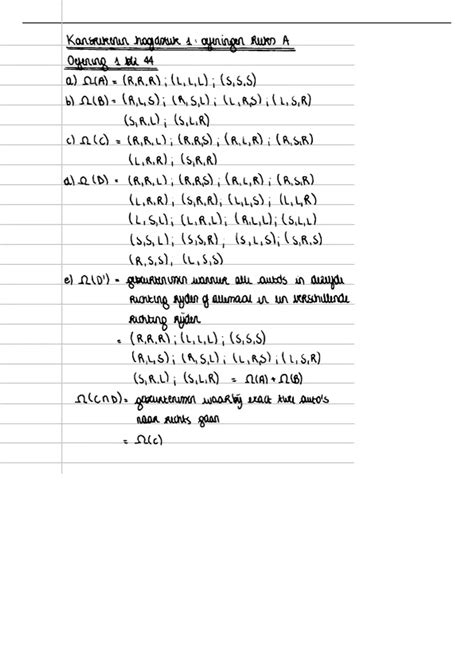 Kansrekenen hoofdstuk 1: oefeningen reeks A
Oefening 1 blz 44
a) Ω(A) = (R,R,R) ; (L,L,L) ; (S,S,S)
b) Ω(B) = (R,L,S) ; (R,S,L) ; (L,R,S) ; (L,S,R)
(S,R,L) ; (S,L,R)
c) Ω(C) = (R,R,L) ; (R,R,S) ; (R,L,R) ; (R,S,R)
(L,R,R) ; (S,R,R)
d) Ω(D) = (R,R,L) ; (R,R,S) ; (R,L,R) ; (R,S,R)
(L,R,R) ; (S,R,R) ; (L,L,S) ; (L,L,R)
(L,S,L) ; (L,R,L) ; (R,L,L) ; (S,L,L)
(S,S,L) ; (S,S,R) ; (S,L,S) ; (S,R,S)
(R,S,S) ; (L,S,S)
e) Ω(D') = gebeurtenissen wanneer alle auto's in dezelfde
richting rijden of allemaal in een verschillende
richting rijden
= (R,R,R) ; (L,L,L) ; (S,S,S)
(R,L,S) ; (R,S,L) ; (L,R,S) ; (L,S,R)
(S,R,L) ; (S,L,R) = Ω(A) + Ω(B)
Ω(C∩D) = gebeurtenissen waarbij exact twee auto's
naar rechts gaan
= Ω(C)